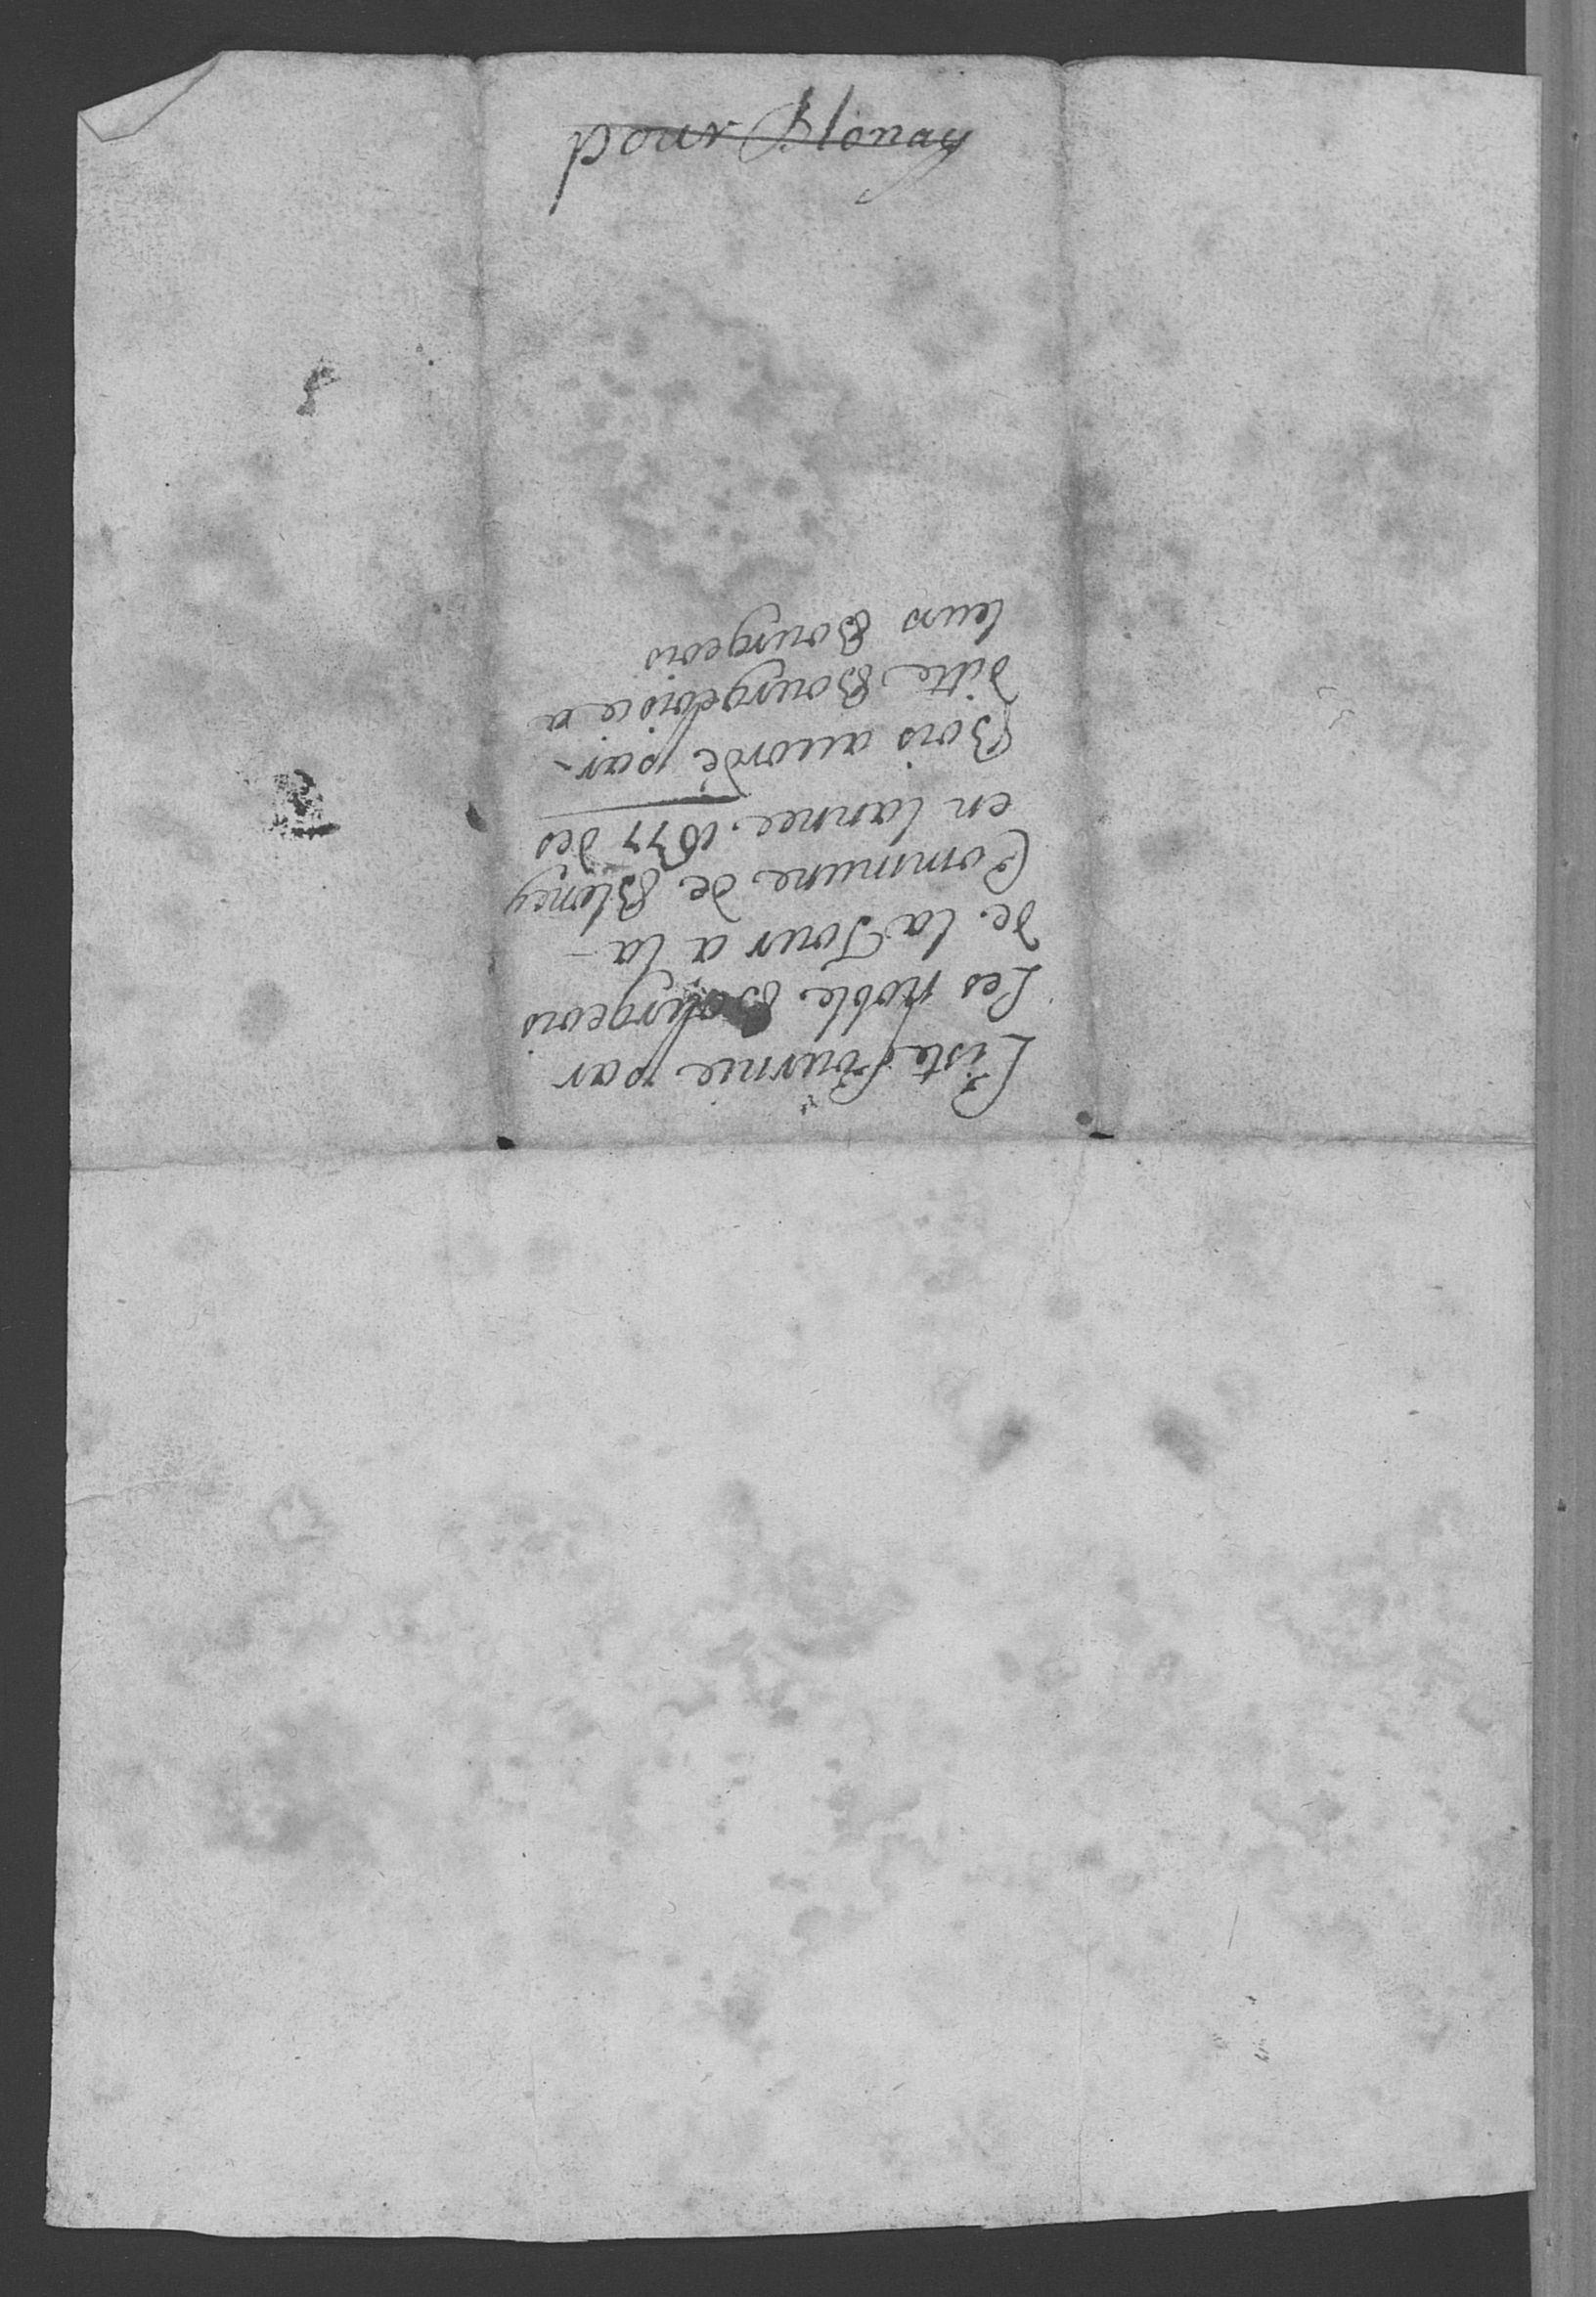 pour Blonay
Liste fournie par
Les Noble Bourgeois
de la Tour a la
Commune de Bloney
en lannee 1677 des
Bois accordé par
ditte Bourgeoisie a
leurs Bourgeois